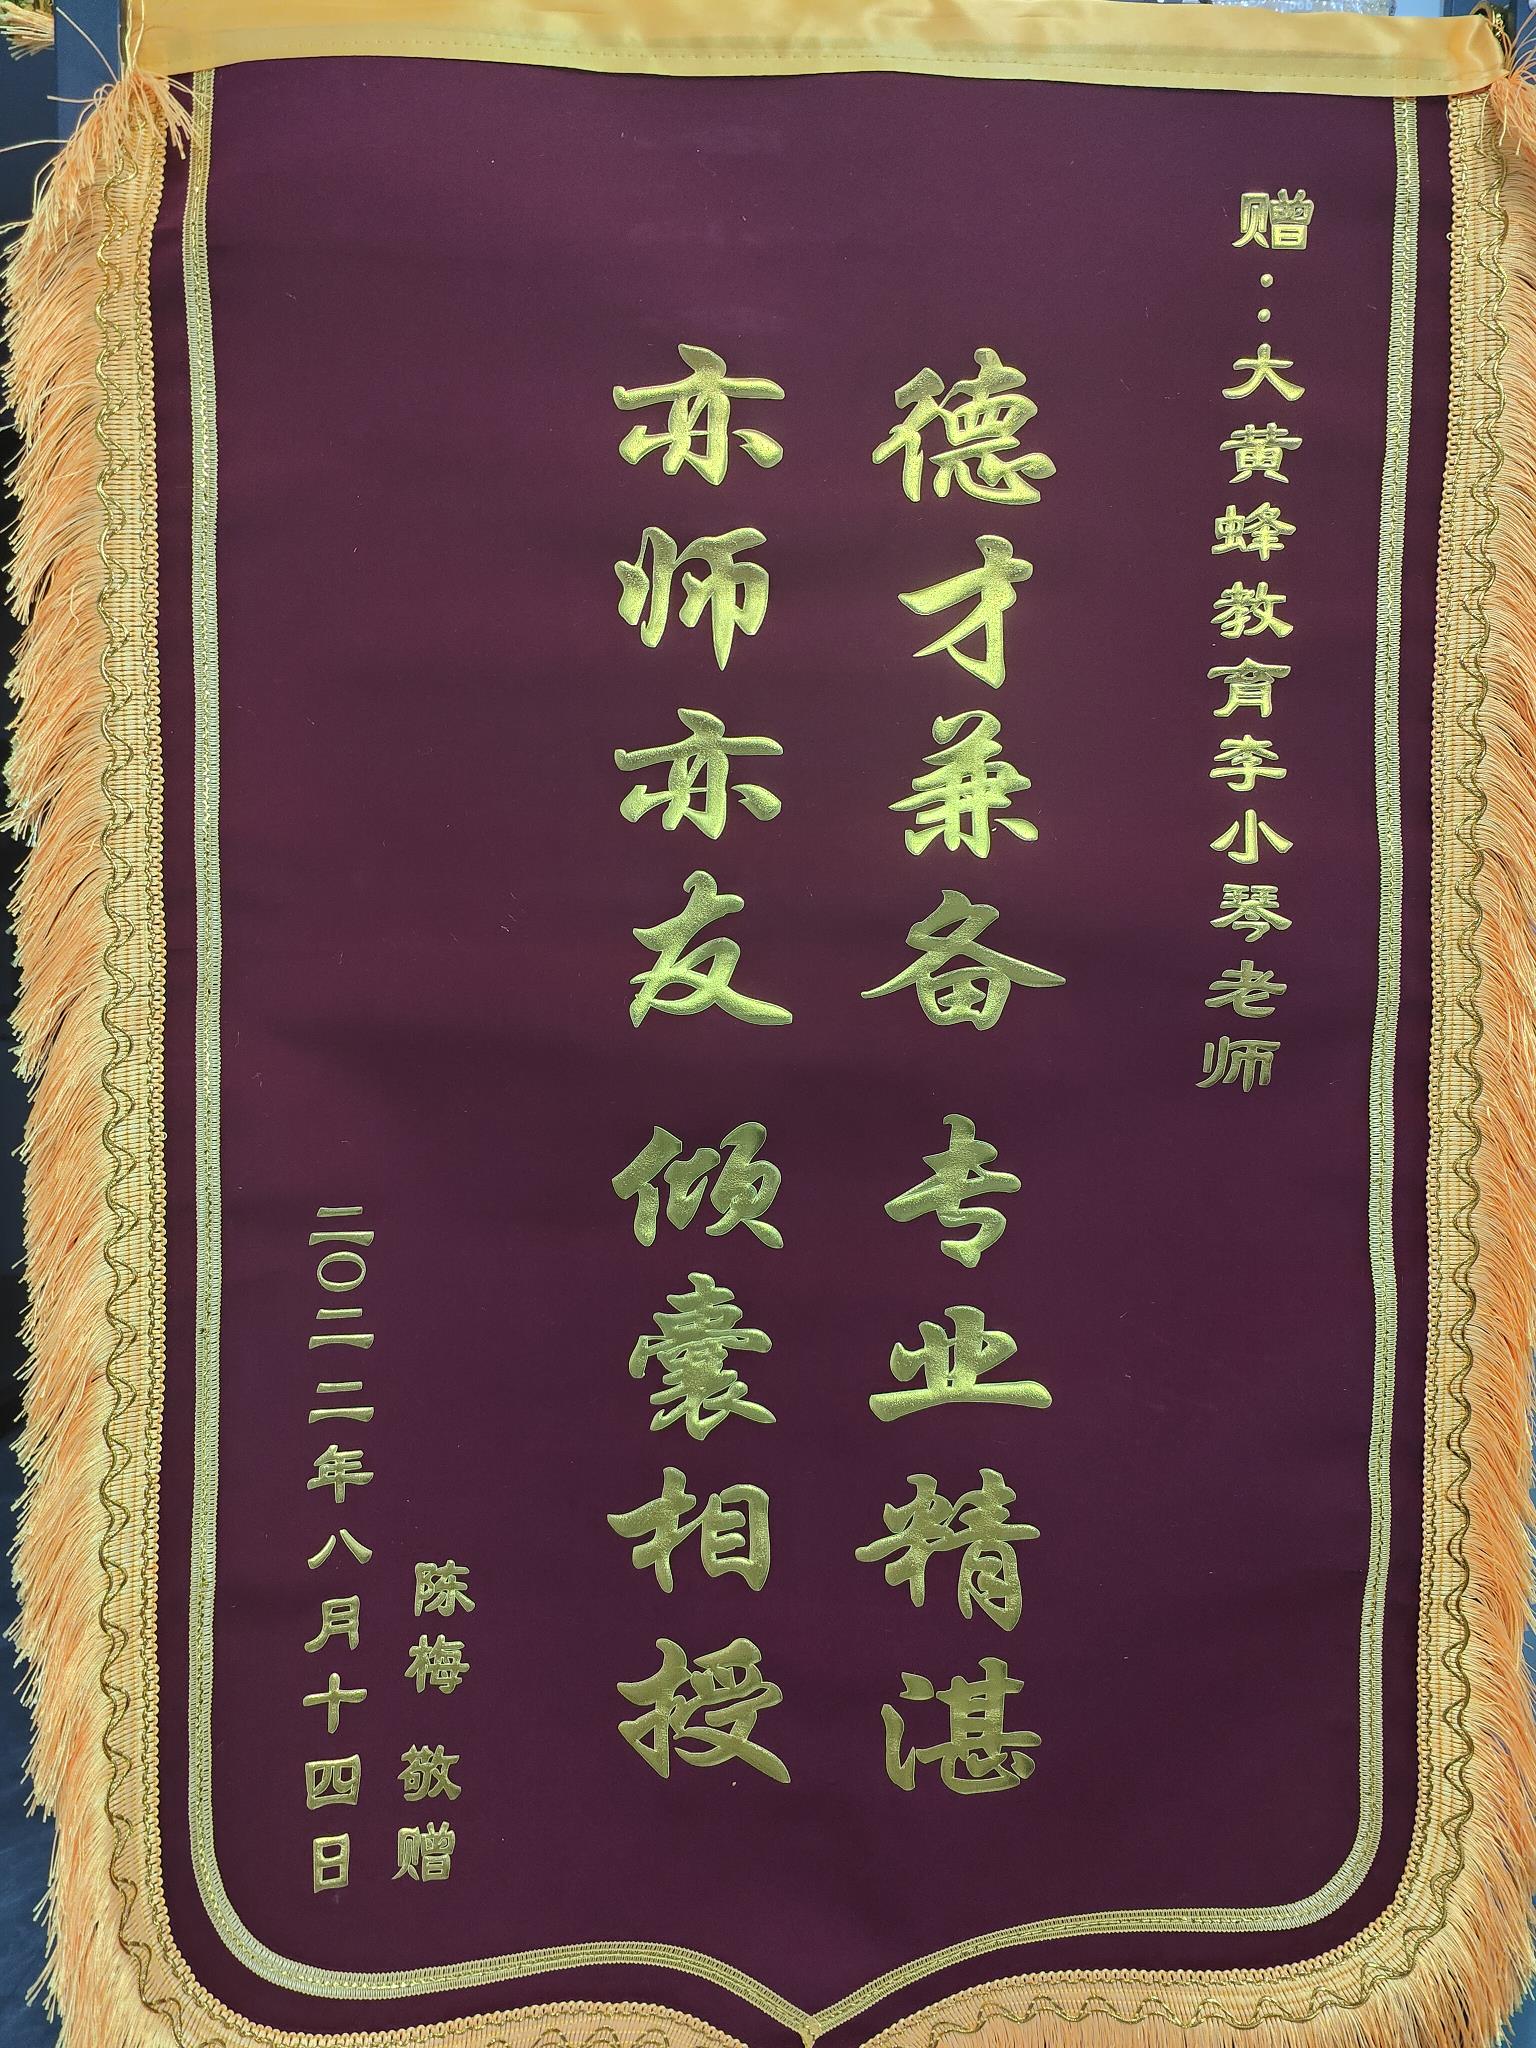 赠：大黄蜂教育李小琴老师
德才兼备 专业精湛
亦师亦友 倾囊相授
陈梅 敬赠
二〇二二年八月十四日